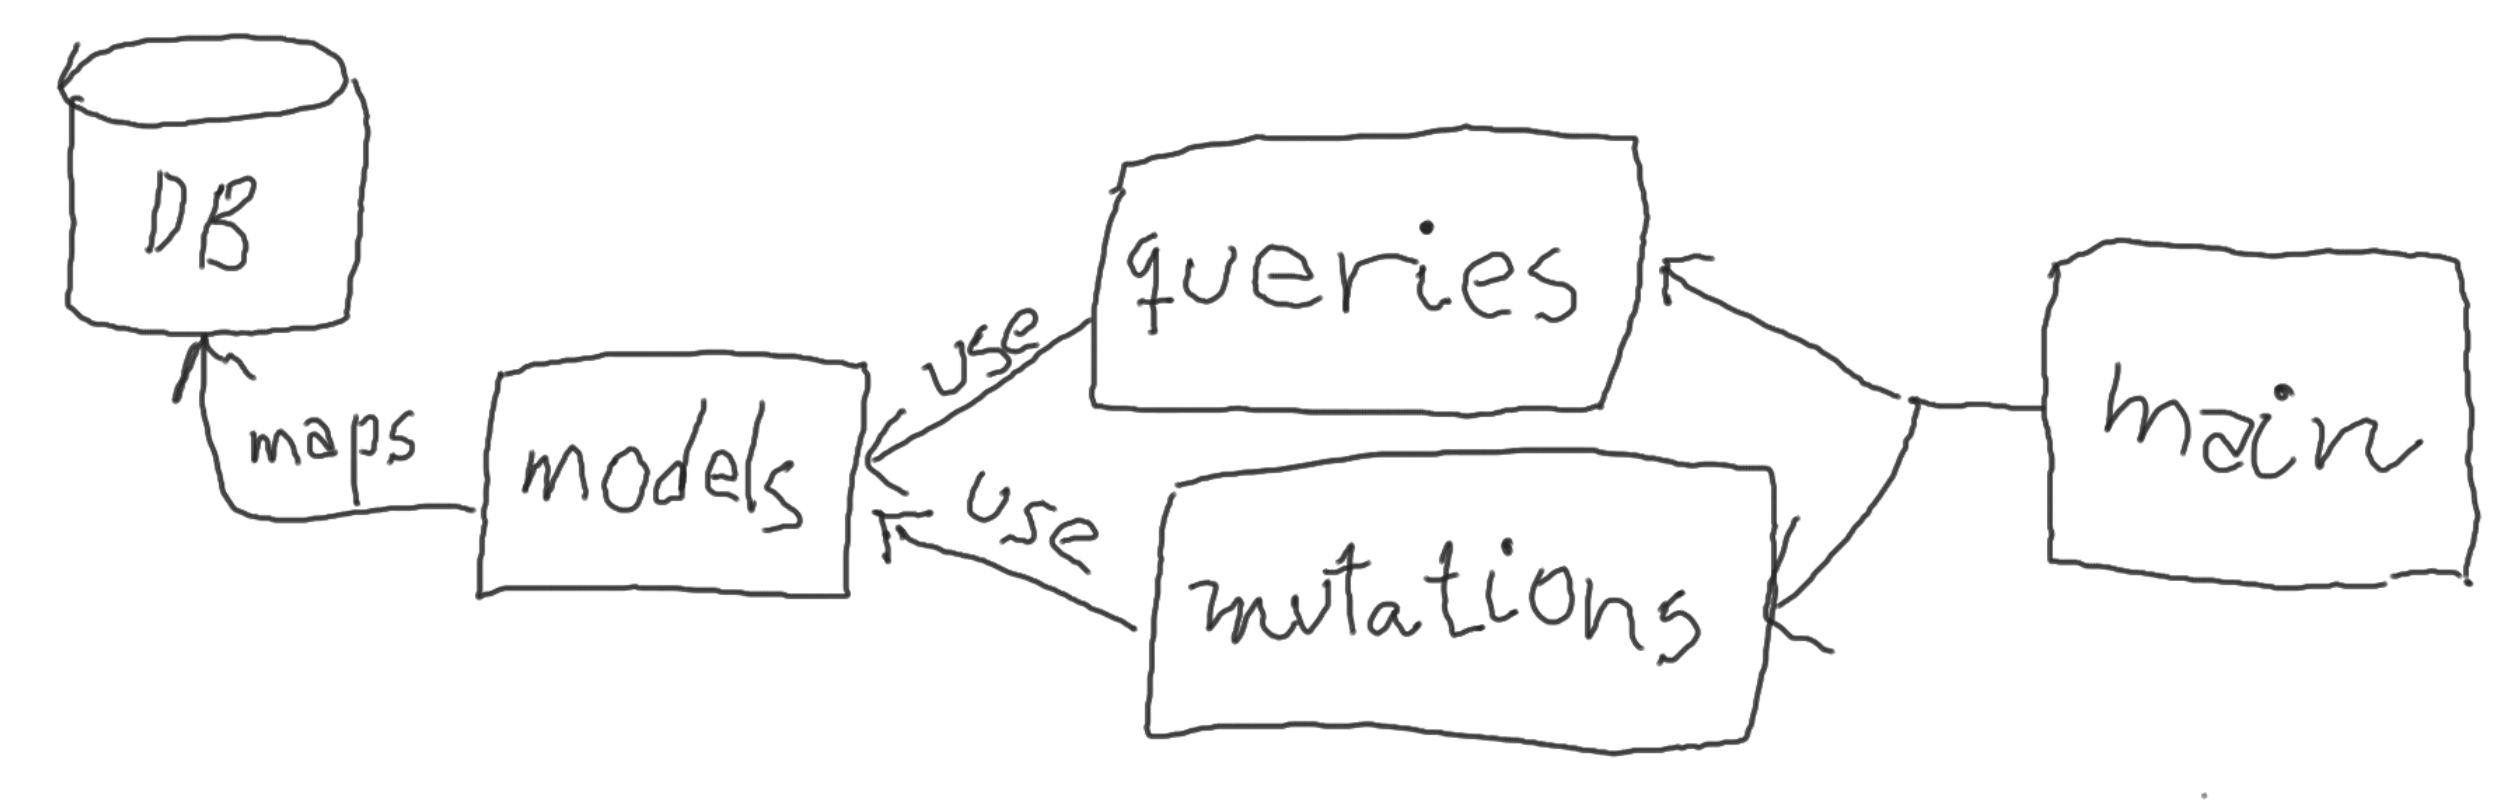 DB
maps
models
use
use
queries
mutations
main